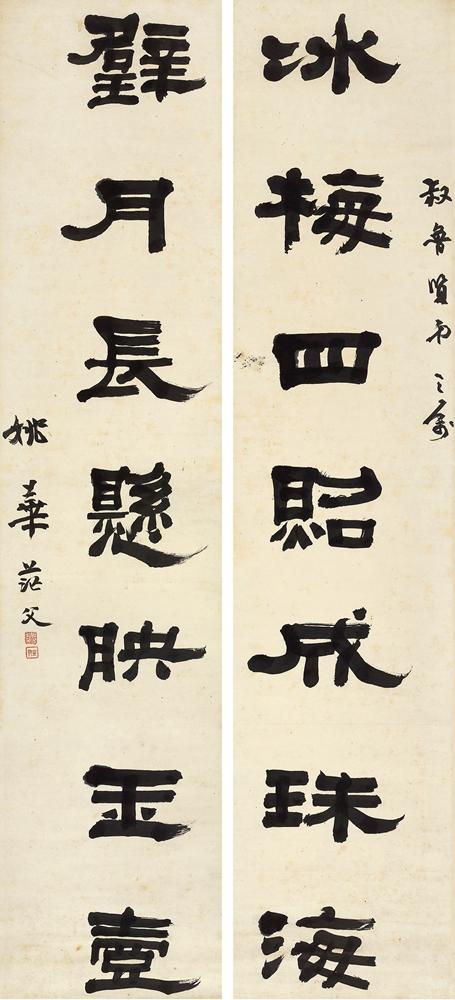 叔魯賢弟之屬
冰梅四照成珠海
璧月長懸映玉壺
姚華茫父